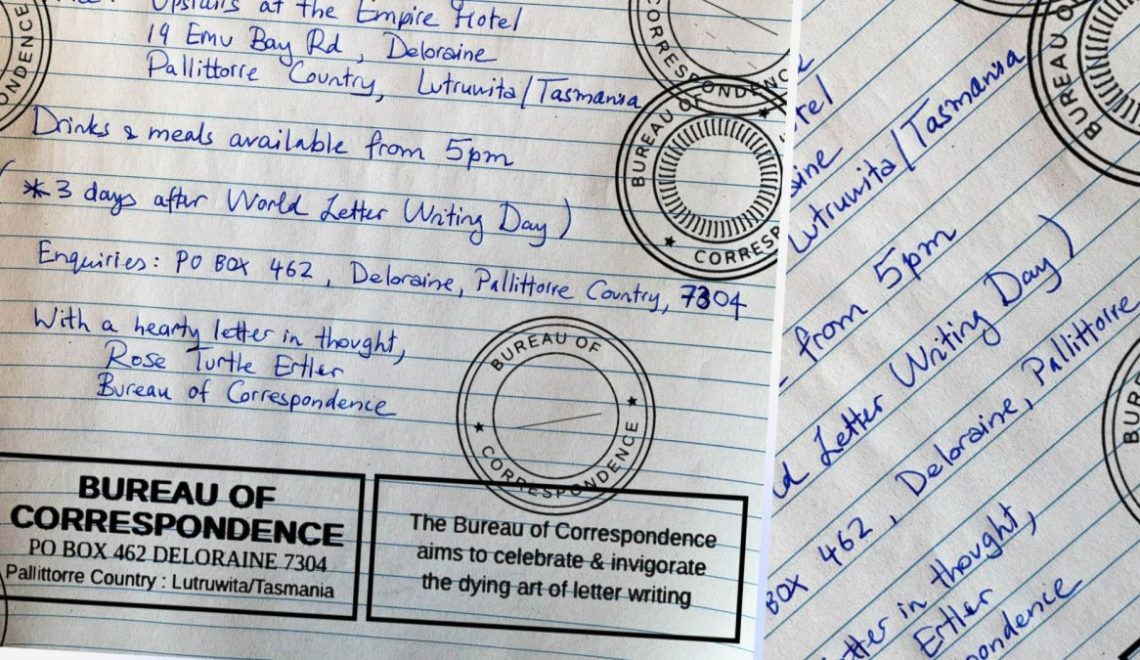 Upstairs at the Empire Hotel
19 Emu Bay Rd, Deloraine
Pallittorre Country, Lutruwita/Tasmania
Drinks & meals available from 5pm
(*3 days after World Letter Writing Day)
Enquiries: PO BOX 462, Deloraine, Pallittorre Country, 7304
With a hearty letter in thought,
Rose Turtle Ertler
Bureau of Correspondence
BUREAU OF
CORRESPONDENCE
PO BOX 462 DELORAINE 7304
Pallittorre Country : Lutruwita/Tasmania
The Bureau of Correspondence
aims to celebrate & invigorate
the dying art of letter writing
BUREAU OF
CORRESPONDENCE
BUREAU OF
CORRESP
CORRESPONDENCE
ONDENCE
Lutruwita/Tasmania
from 5pm
Letter Writing Day)
BOX 462, Deloraine, Pallittorre
in thought,
Ertler
pondence
BUREAU O
BUR